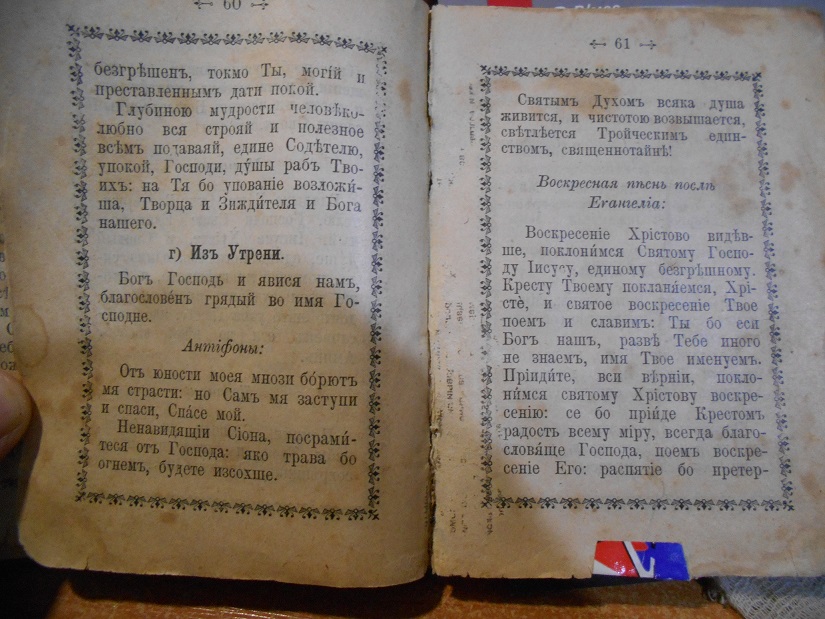 60
безгрѣшенъ, токмо Ты, могій и
преставленнымъ дати покой.
Глубиною мудрости человѣко-
любно вся строяй и полезное
всѣмъ подаваяй, едине Содѣтелю,
упокой, Господи, ду́шы рабъ Тво-
ихъ: на Тя бо упованіе возложи́-
ша, Творца и Зижди́теля и Бога
нашего.
г) Изъ Утрени.
Богъ Господь и явися намъ,
благослове́нъ грядый во имя Го-
сподне.
Антіфоны:
Отъ юности моея мнози бо́рютъ
мя страсти: но Самъ мя заступи
и спаси, Спа́се мой.
Ненавидящіи Сіона, посрами́-
теся отъ Господа: яко трава бо
огнемъ, будете изсохше.
61
Святымъ Духомъ всяка душа
живится, и чистотою возвышается,
свѣтлѣется Тройческимъ един-
ствомъ, священнотайнѣ!
Воскресная пѣснь послѣ
Евангелія:
Воскресеніе Хрістово видѣв-
ше, поклони́мся Святому Госпо-
ду Іисусу, единому безгрѣшному.
Кресту Твоему покланя́емся, Хрі-
стѐ, и святое воскресеніе Твое
поемъ и славимъ: Ты бо еси
Богъ нашъ, развѣ Тебе иного
не знаемъ, имя Твое именуемъ.
Пріиди́те, вси вѣрніи, покло-
ни́мся святому Хрістову воскре-
сенію: се бо пріи́де Крестомъ
радость всему міру, всегда благо-
словя́ще Господа, поемъ воскре-
сеніе Его: распятіе бо претер-